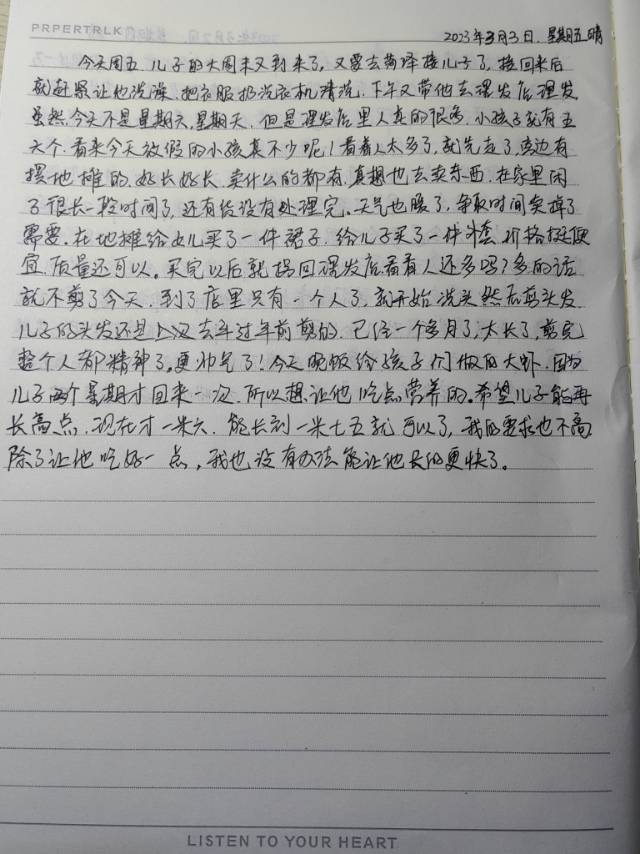 PRPERTRLK
2023年3月3日.星期五 晴
今天周五 儿子的大周末又到来了,又要去菏泽接儿子了,接回来后
就赶紧让他洗澡.把衣服扔洗衣机清洗.下午又带他去理发店理发
虽然今天不是星期六,星期天,但是理发店里人真的很多.小孩子就有五
六个.看来今天放假的小孩真不少呢!看着人太多了,就先走了,旁边有
摆地摊的.好长好长.卖什么的都有.真想也去卖东西.在家里闲
了很长一段时间了,还有货没有处理完。天气也暖了,争取时间卖掉了
需要.在地摊给女儿买了一件裙子,给儿子买了一件外套.价格挺便
宜.质量还可以。买完以后就拐回理发店看看人还多吗?多的话
就不剪了今天.到了店里只有一个人了,就开始洗头然后剪头发.
儿子的头发还是上次去年过年前剪的.已经一个多月了,太长了,剪完
整个人都精神了。更帅气了!今天晚饭给孩子们做的大虾.因为
儿子两个星期才回来一次.所以想让他吃点营养的。希望儿子能再
长高点.现在才一米六.能长到一米七五就可以了,我的要求也不高
除了让他吃好一点,我也没有办法能让他长的更快了。
LISTEN TO YOUR HEART